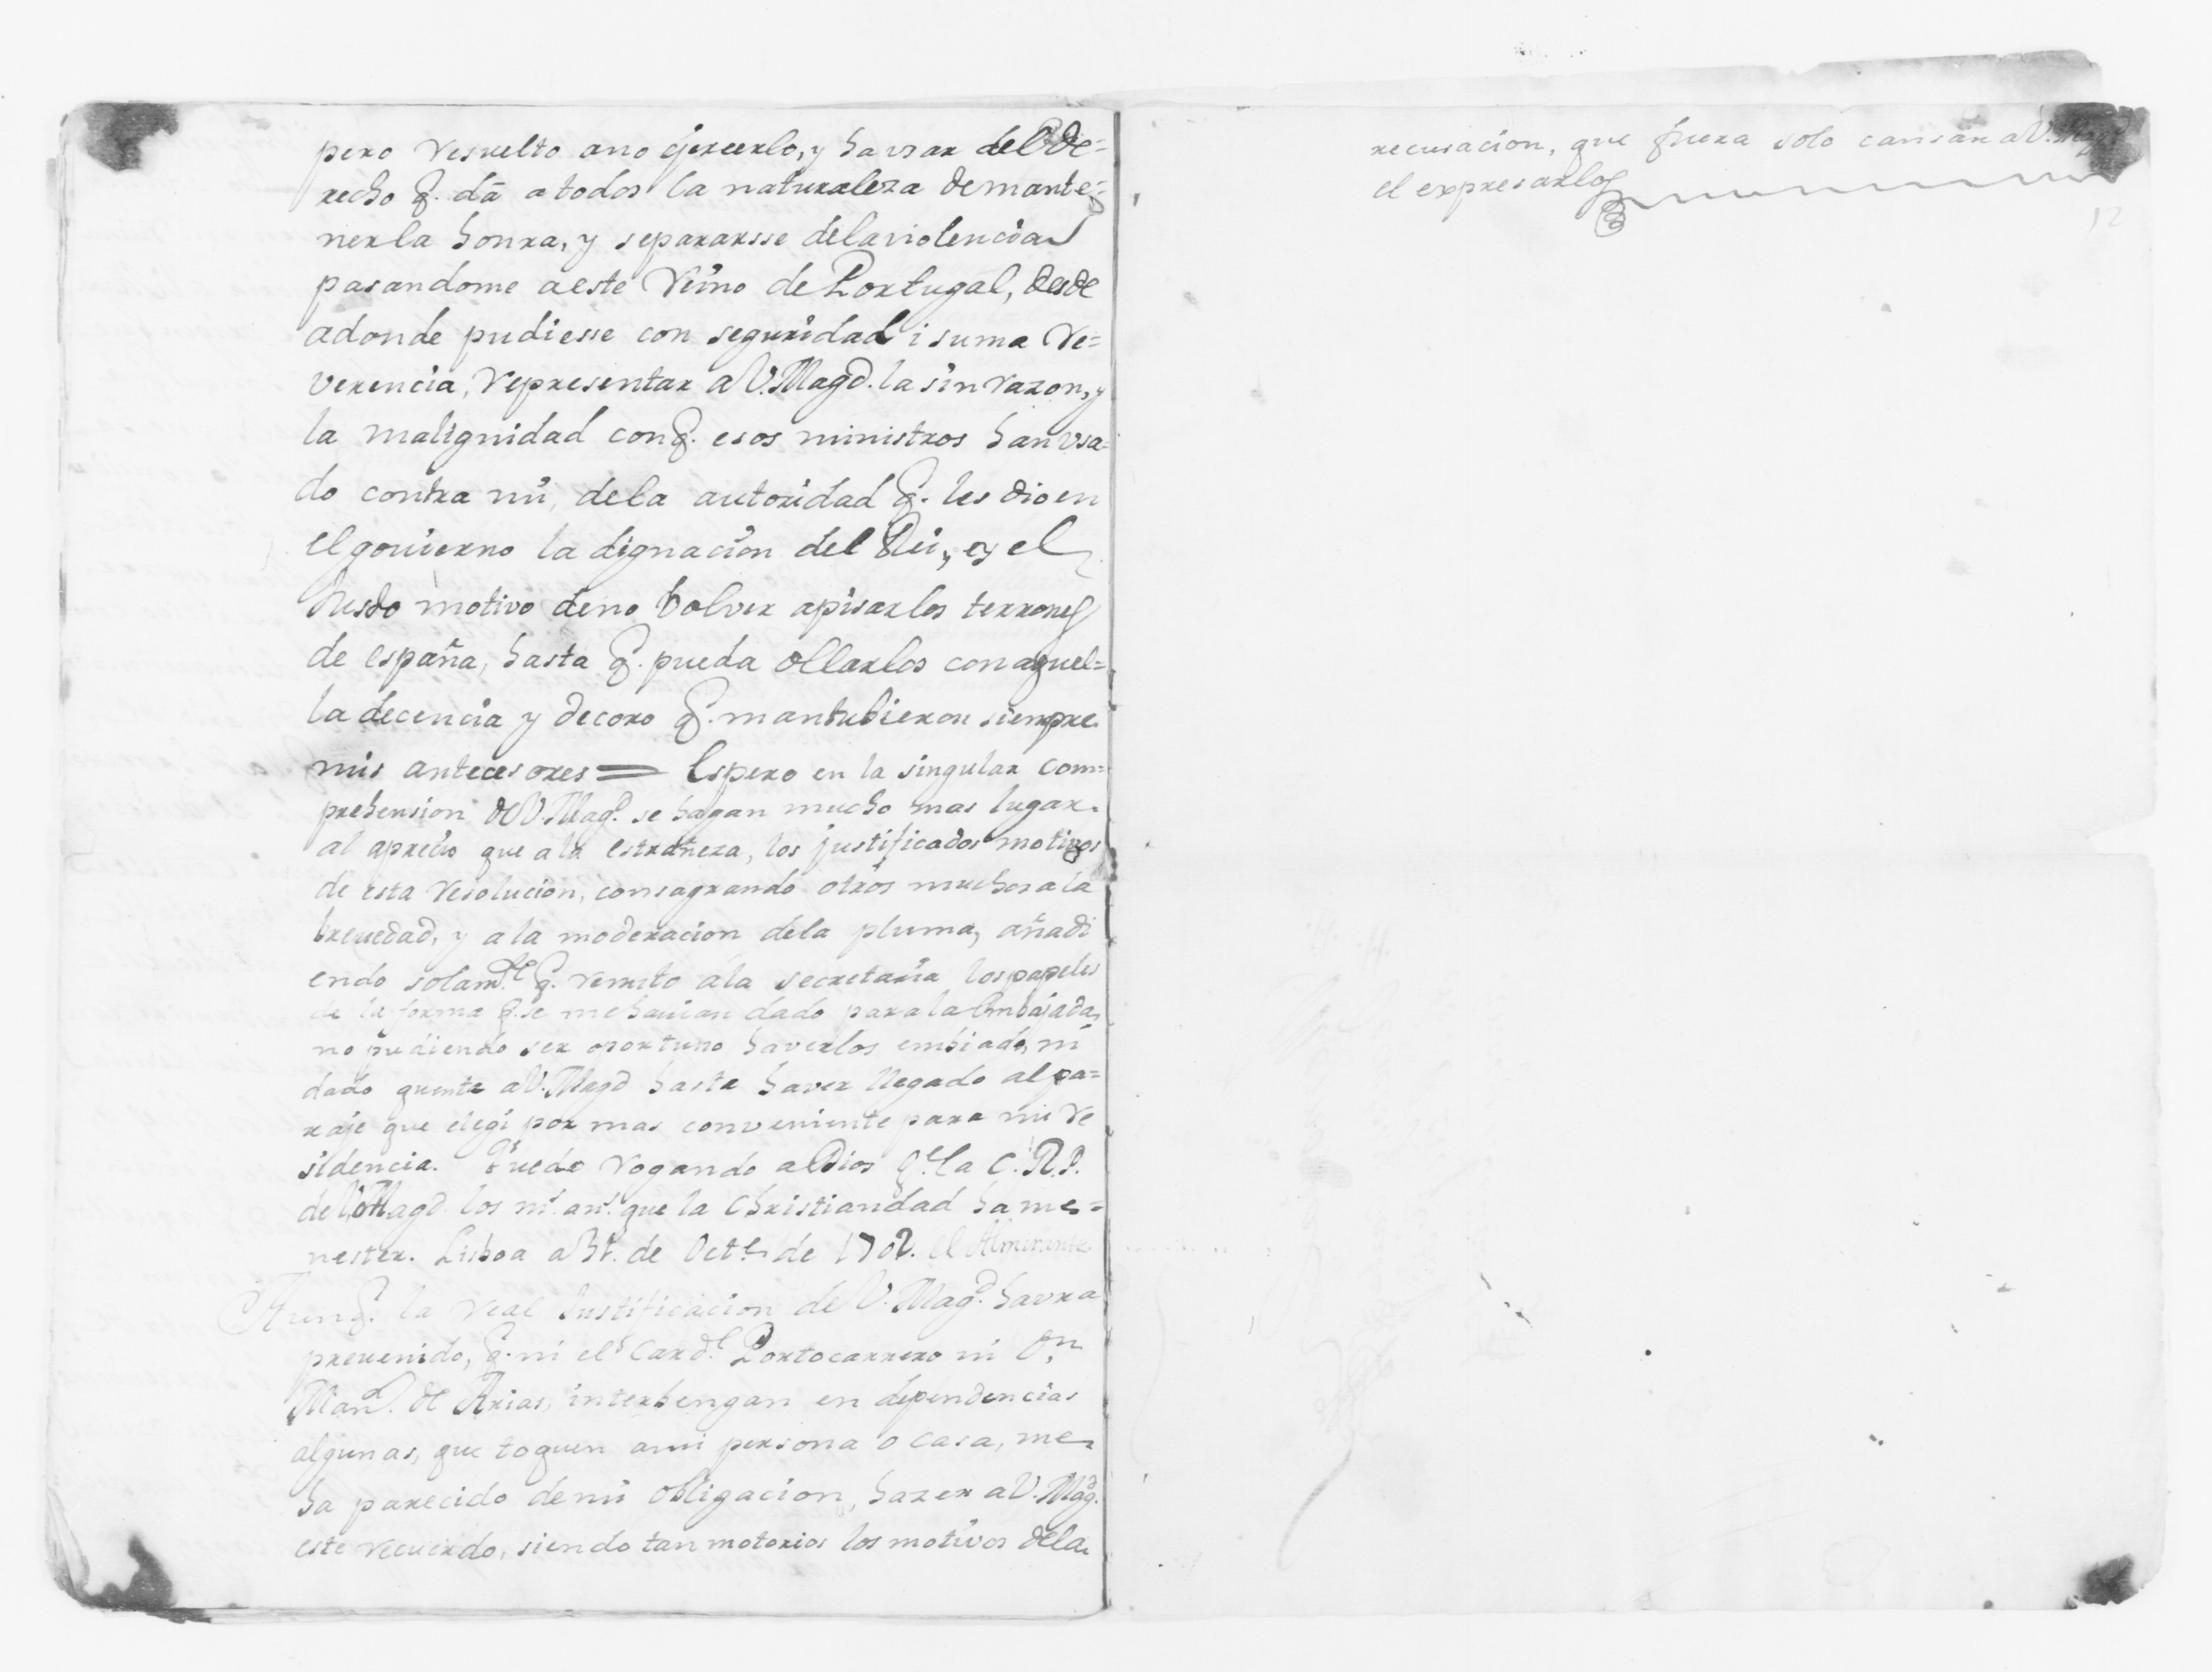 pero resuelto a no ejercerlo, y ha usar del de=
recho q. dã a todos la naturaleza de mante=
ner la honra, y separarsse dela violencia
pasandome a este Reino de Portugal, desde
adonde pudiesse con seguridad i suma re=
verencia, representar a V. Magd. la sin razon, y
la malignidad con q. esos ministros han usa=
do contra mi, dela autoridad q. les dio en
el gouierno la dignacion del Rei, y el
Justo motivo de no bolver apisar los terrones
de españa, hasta q. pueda ollarlos con aquel=
la decencia y decoro q. mantubieron siempre
mis antecesores = Espero en la singular com=
prehension de V. Magd. se hagan mucho mas lugar
al aprecio que a la estrañeza, los justificados motivos
de esta resolucion, consagrando otros muchos a la
breuedad, y a la moderacion dela pluma, añadi
endo solamte. q. remito ala secretaria los papeles
de la forma q. se me hauian dado para la Embajada,
no pudiendo ser oportuno haverlos embiado, ni
dado quenta a V. Magd hasta haver llegado al pa=
raje que elegi por mas conveniente para mi re
sidencia. Quedo rogando a Dios ge. la C. R. P.
de V. Magd. los ms. ans. que la Christiandad ha me=
nester. Lisboa a 31. de Octe. de 1702. el Almirante
Aunq. la real Justificacion de V. Magd. havra
preuenido, q. ni el Cardl. Portocarrero ni Dn.
Manl. de Arias, interbengan en dependencias
algunas, que toquen ami persona o casa, me
ha parecido de mi obligacion, hazer a V. Magd.
este recuerdo, siendo tan notorios los motivos dela
recusacion, que fuera solo cansar a V. Magd.
el expresarlos
12